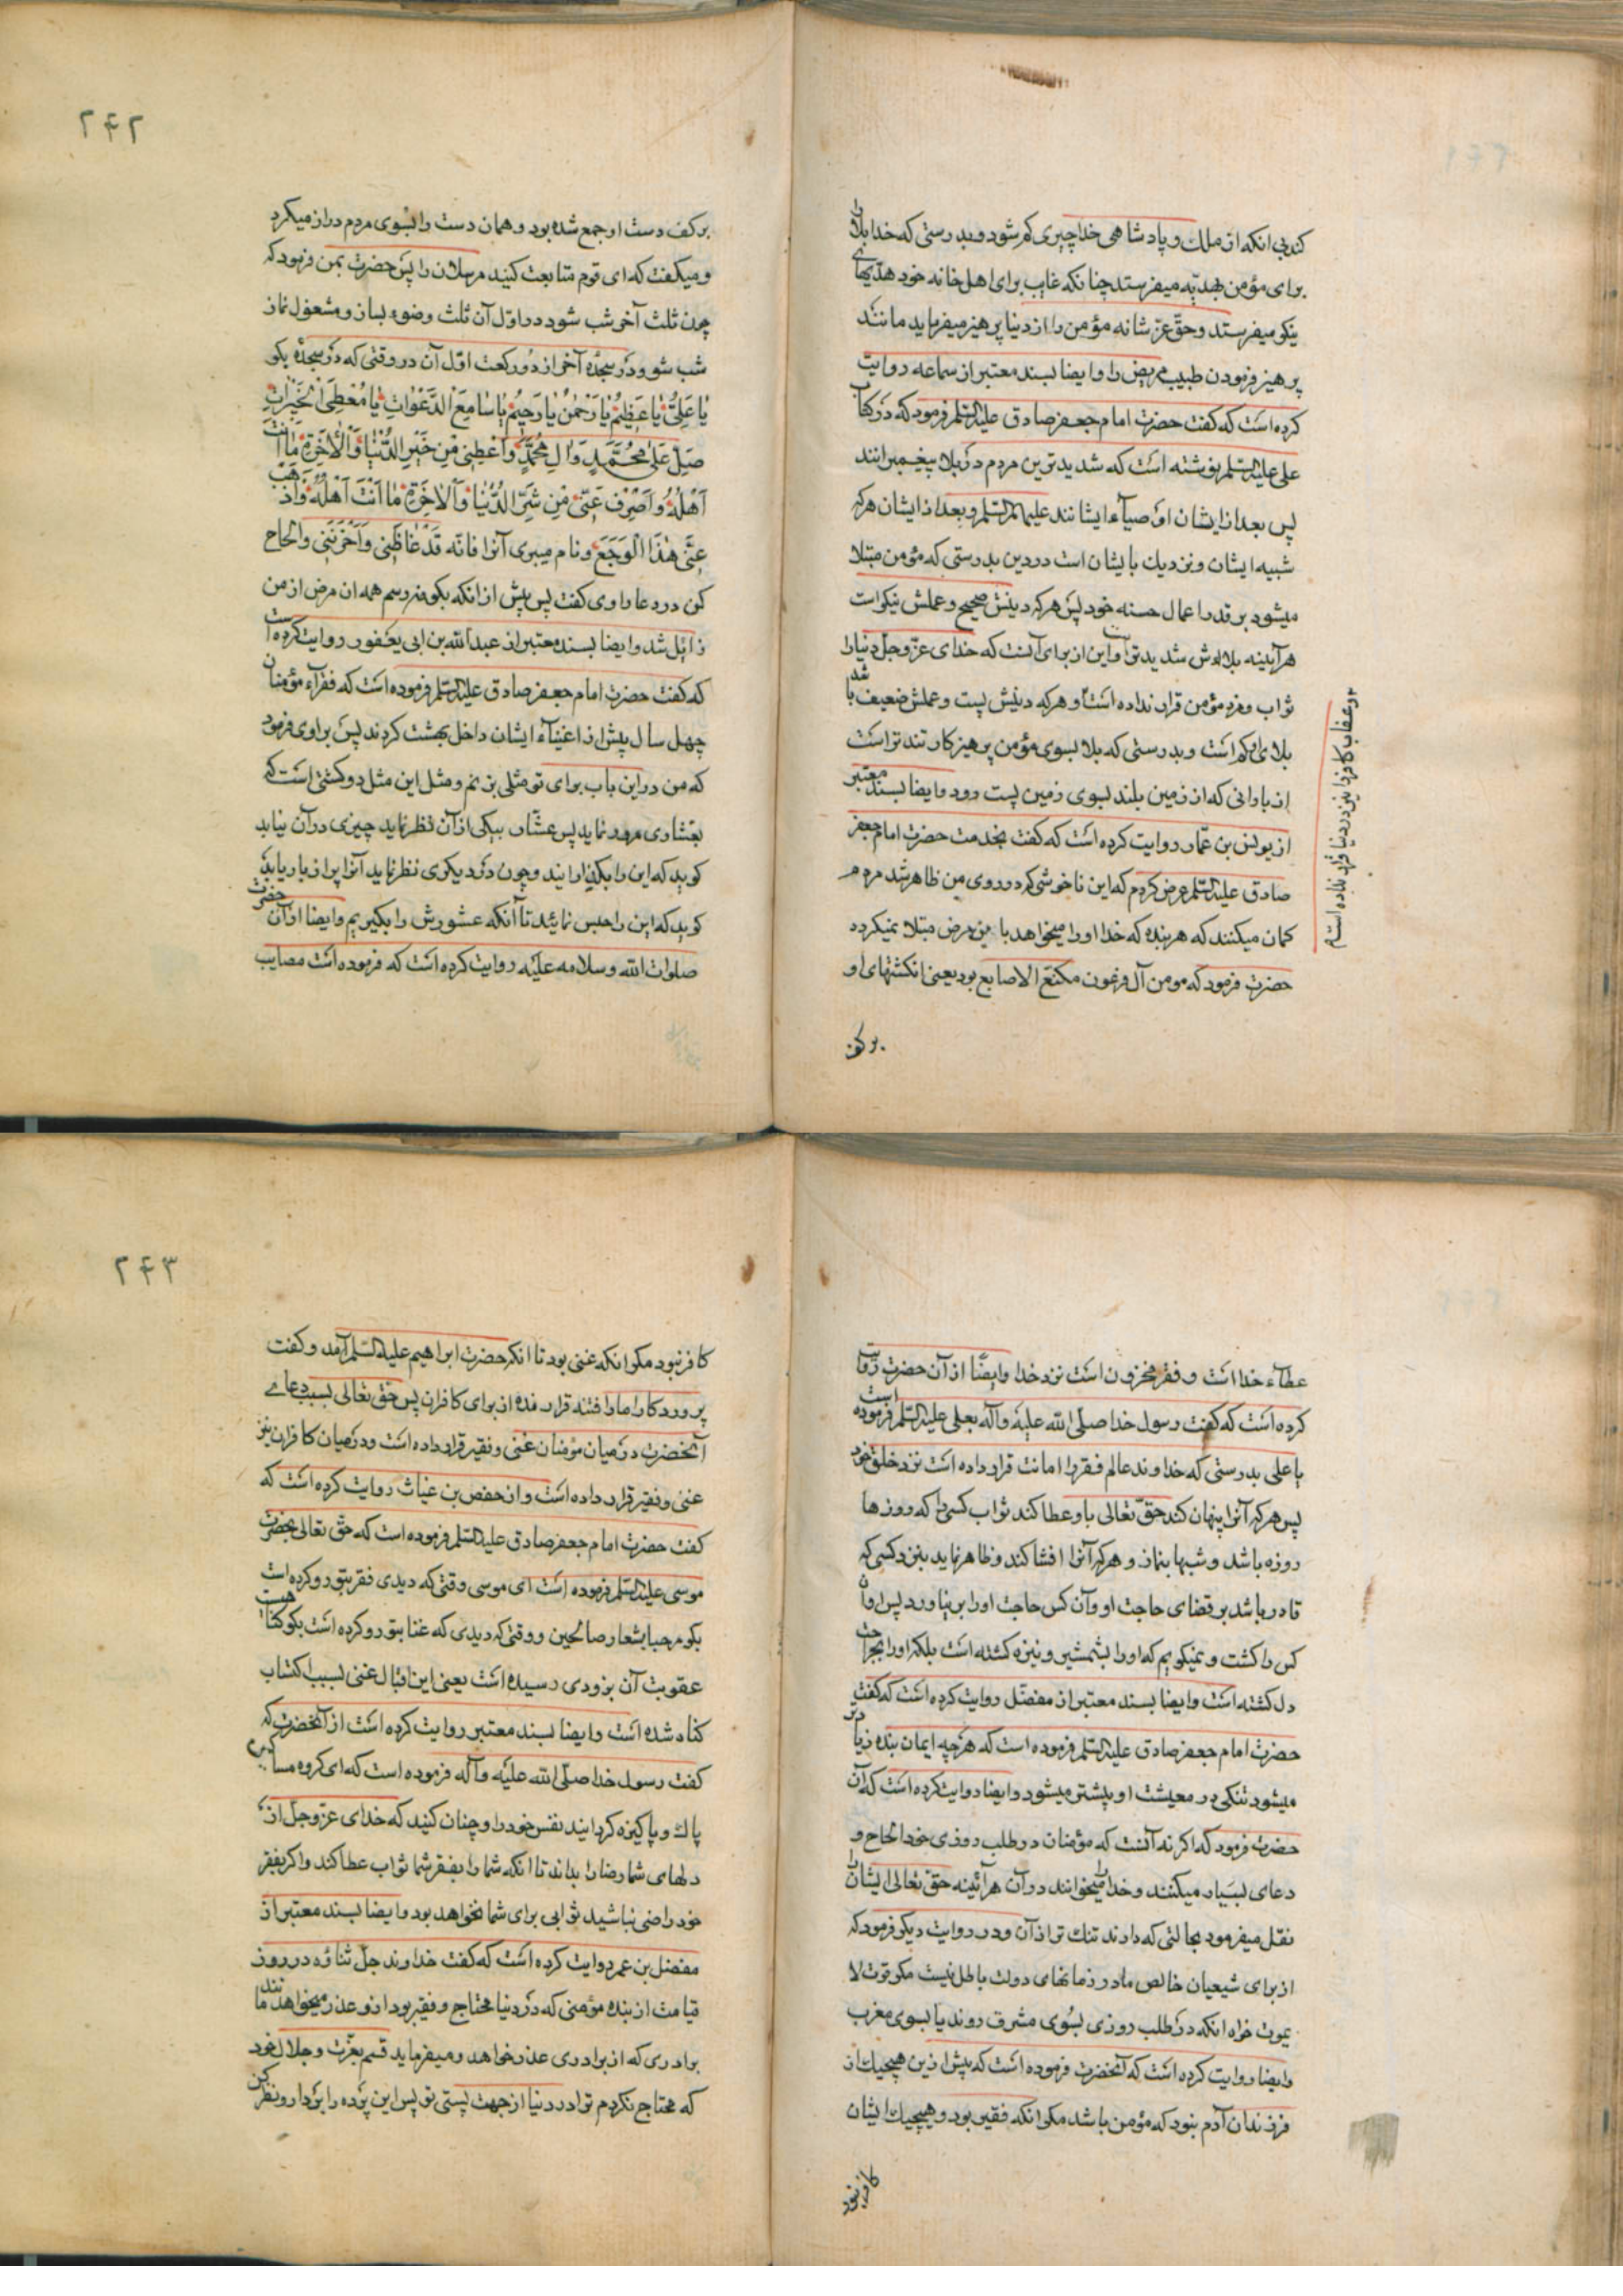 کند بی انکه از ملك و پادشاهی خدا چیزی کم شود و بدرستی که خدا بلا را
برای مؤمن بهدیّه میفرستد چنانکه غایب برای اهل خانه خود هدّیهای
نیکو میفرستد و حقّ عزّ شانه مؤمن را از دنیا پرهیز میفرماید مانند
پرهیز فرمودن طبیب مریض را و ایضا بسند معتبر از سماعه روایت
کرده است که گفت حضرت امام جعفر صادق علیه السّلم فرمود که در کتاب
علی علیه السّلم نوشته است که شدیدترین مردم در بلا پیغمبرانند
پس بعد از ایشان اوصیآء ایشانند علیهم السّلم و بعد از ایشان هر که
شبیه ایشان و نزدیك بایشان است در دین بدرستی که مؤمن مبتلا
میشود بر قدر اعمال حسنه خود پس هر که دینش صحیح و عملش نیکو است
هرآینه بلااش شدیدتر است و این از برای آنست که خدای عزّ و جلّ دنیا را
ثواب و مزد مؤمن قرار نداده است و هر که دینش پست و عملش ضعیف باشد
بلای او کم است و بدرستی که بلا بسوی مؤمن پرهیز کار تندتر است
از بارانی که از زمین بلند بسوی زمین پست رود و ایضا بسند معتبر
از یونس بن عمّار روایت کرده است که گفت بخدمت حضرت امام جعفر
صادق علیه السّلم عرض کردم که این ناخوشی که در روی من ظاهر شد مردم
کمان میکنند که هر بنده که خدا او را میخواهد باین مرض مبتلا نمیکردد
حضرت فرمود که مومن آل فرعون مکتع الاصابع بود یعنی انکشتهای او
و عقاب کافر را نیز در دنیا قرار نداده است
بر کف
۲۴۲
بر کف دست او جمع شده بود و همان دست را بسوی مردم دراز میکرد
و میکفت که ای قوم متابعت کنید مرسلان را پس حضرت بمن فرمود که
چون ثلث آخر شب شود در اوّل آن ثلث وضوء بساز و مشغول نماز
شب شو و در سجدۀ آخر از دو رکعت اوّل آن در وقتی که در سجدۀ بکو
یا عَلِیُّ یا عَظِیمُ یا رَحْمٰنُ یا رَحِیمُ یا سامِعَ الدَّعَواتِ یا مُعْطِیَ الْخَیْراتِ
صَلِّ عَلیٰ مُحَمَّدٍ وَ الِ مُحَمَّدٍ وَ اَعْطِنی مِنْ خَیْرِ الدُّنْیا وَ الْاٰخِرَةِ ما اَنْتَ
اَهْلُهُ وَ اصْرِفْ عَنّی مِنْ شَرِّ الدُّنْیا وَ الْاٰخِرَةِ ما اَنْتَ اَهْلُهُ وَ اَذْهِبْ
عَنّی هٰذَا الْوَجَعَ و نام میبری آنرا فَانَّه قَدْ غاظَنی وَ اَحْزَنَنی و الحاح
کن در دعا راوی کفت پس پیش از انکه بکوفه رسم همه ان مرض از من
زایل شد و ایضا بسند معتبر از عبد الله بن ابی یعفور روایت کرده است
که کفت حضرت امام جعفر صادق علیه السّلم فرموده است که فقرآء مؤمنان
چهل سال پیش از اغنیآء ایشان داخل بهشت کردند پس براوی فرمود
که من در این باب برای تو مثلی بزنم و مثل این مثل دو کشتی است که
بعشاری مرور نماید پس عشّار بیکی از آن نظر نماید چیزی در آن نیابد
کوید که این را بکذرانید و چون در دیکری نظر نماید آنرا پر از بار یابد
کوید که این را حبس نمائید تا آنکه عشورش را بکیریم و ایضا از آن حضرت
صلوات الله و سلامه علیه روایت کرده است که فرموده است مصایب
عطاء خدا است و فقر مخزون است نزد خدا و ایضًا از آن حضرت روایت
کرده است که کفت رسول خدا صلّی الله علیه و آله بعلی علیه السّلم فرموده است
یا علی بدرستی که خداوند عالم فقر را امانت قرار داده است نزد خلق خود
پس هر که آنرا پنهان کند حقّ تعالی باو عطا کند ثواب کسی را که روزها
روزه باشد و شبها بنماز و هر که آنرا افشا کند و ظاهر نماید بنزد کسی که
قادر باشد بر قضای حاجت او و آن کس حاجت او را بر نیاورد پس او آن
کس را کشت و نمیکویم که او را بشمشیر و نیزه کشته است بلکه او را بجراحت
دل کشته است و ایضا بسند معتبر از مفضّل روایت کرده است که کفت
حضرت امام جعفر صادق علیه السّلم فرموده است که هر چه ایمان بنده زیادتر
میشود تنکی در معیشت او بیشتر میشود و ایضا روایت کرده است که آن
حضرت فرمود که اکر نه آنست که مؤمنان در طلب روزی خود الحاح و
دعای بسیار میکنند و خدا را میخوانند در آن هرآئینه حقّ تعالی ایشان را
نقل میفرمود بحالتی که دارند تنك تر از آن و در روایت دیکر فرمود که
از برای شیعیان خالص ما در زمانهای دولت باطل نیست مکر قوت لا
یموت خواه انکه در طلب روزی بسوی مشرق روند یا بسوی مغرب
و ایضا روایت کرده است که آنحضرت فرموده است که پیش ازین هیچیك از
فرزندان آدم نبود که مؤمن باشد مکر انکه فقیر بود و هیچیك ایشان
کافر نبود
۲۴۳
کافر نبود مکر انکه غنی بود تا انکه حضرت ابراهیم علیه السّلم آمد و کفت
پروردکارا ما را فتنه قرار مده از برای کافران پس حقّ تعالی بسبب دعای
آنحضرت در میان مؤمنان غنی و فقیر قرار داده است و در میان کافران نیز
غنی و فقیر قرار داده است و از حفص بن غیاث روایت کرده است که
کفت حضرت امام جعفر صادق علیه السّلم فرموده است که حقّ تعالی بحضرت
موسی علیه السّلم فرموده است ای موسی وقتی که دیدی فقر بتو رو کرده است
بکو مرحبا بشعار صالحین و وقتی که دیدی که غنا بتو رو کرده است بکو کناهیست
عقوبت آن بزودی رسیده است یعنی این اقبال غنی بسبب اکتساب
کناه شده است و ایضا بسند معتبر روایت کرده است از آنحضرت که
کفت رسول خدا صلّی الله علیه و آله فرموده است که ای کروه مساکین
پاك و پاکیزه کردانید نفس خود را و چنان کنید که خدای عزّ و جلّ از
دلهای شما رضا را بداند تا انکه شما را بفقر شما ثواب عطا کند و اکر بفقر
خود راضی نباشید ثوابی برای شما نخواهد بود و ایضا بسند معتبر از
مفضل بن عمر روایت کرده است که کفت خداوند جلّ ثناؤه در روز
قیامت از بنده مؤمنی که در دنیا محتاج و فقیر بود از او عذر میخواهد مانند
برادری که از برادری عذر خواهد و میفرماید قسم بعزّت و جلال خود
که محتاج نکردم ترا در دنیا از جهت پستی تو پس این پرده را بردار و نظر کن